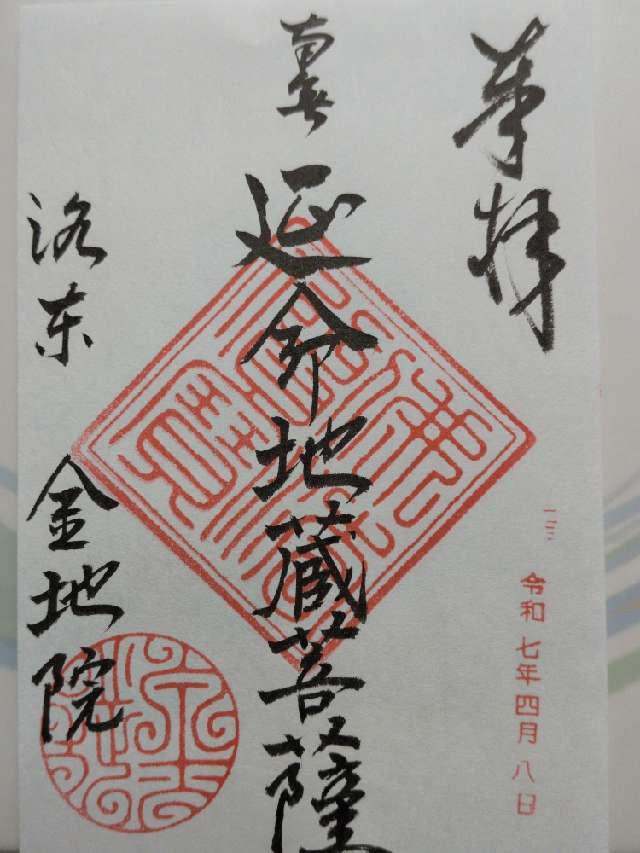 奉拝
二三
令和七年四月八日
南無
延命地蔵菩薩
洛东
金地院